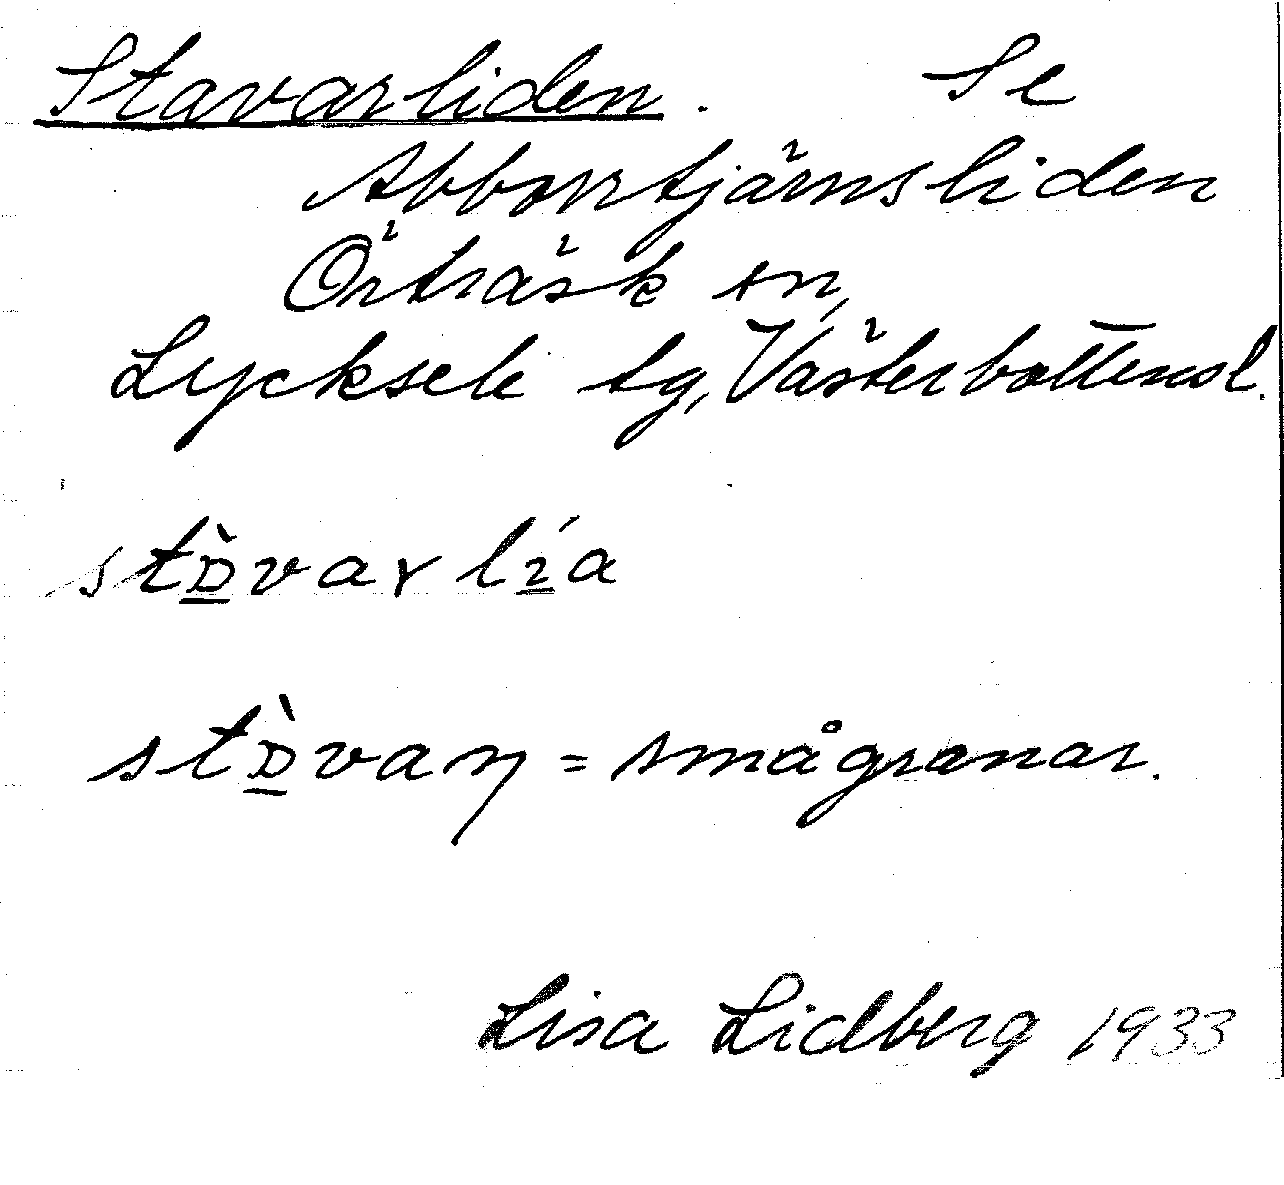 Stavarliden. Se
Abborrtjärnsliden
Örträsk sn,
Lycksele tg, Västerbottensl.
stàvar lía
stàvaŋ = smågranar.
Lisa Lidberg 1933